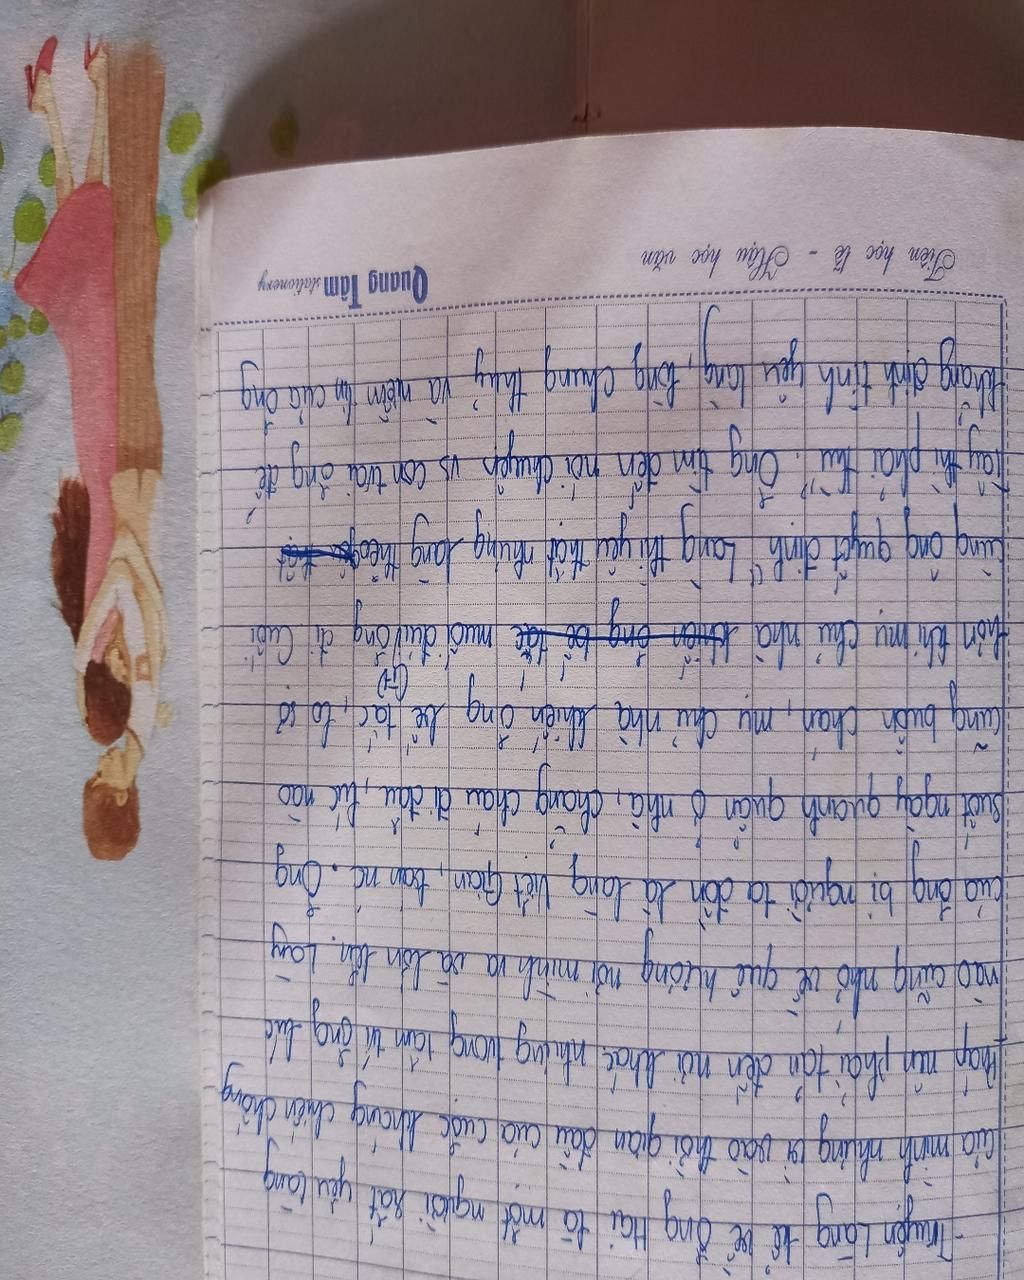 - Truyện Làng kể về ông Hai là một người rất yêu làng
của mình nhưng vì vào thời gian đầu của cuộc kháng chiến chống
Pháp nên phải tản đến nơi khác nhưng trong tâm trí ông lúc
nào cũng nhớ về quê hương nơi mình ra và lớn lên. Làng
của ông bị người ta đồn là làng Việt Gian, bán nc. Ông
suốt ngày quanh quẩn ở nhà, chẳng đi đâu, lúc nào
cũng buồn chán, mụ chủ nhà khiến ông bế tắc, lo sợ
hơn khi mụ chủ nhà khiến ông bế tắc muốn đuổi ông đi. Cuối
cùng ông quyết định "Làng thì yêu thật nhưng làng theo
Tây thì phải thù". Ông tìm đến nói chuyện vs con trai ông để
khẳng định tình yêu làng, lòng chung thủy và niềm tin của ông
Tiên học lễ - Hậu học văn
Quang Tâm stationery